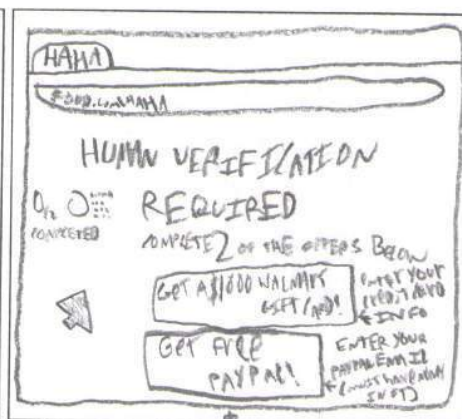 HAHA
HUMAN VERIFICATION
REQUIRED
0/2
COMPLETED
COMPLETE 2 OF THE OFFERS BELOW
GET A $1000 WALMART
GIFT CARD!
ENTER YOUR
CREDIT CARD
INFO
GET FREE
PAYPAL!
ENTER YOUR
PAYPAL EMAIL
(MUST HAVE MONEY
IN IT)